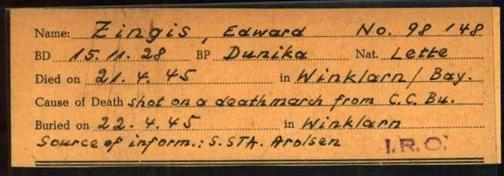 Name: Zingis, Edward No. 98 148
BD 15.11.28 BP Dunika Nat. Lette
Died on 21.4.45 in Winklarn/Bay.
Cause of Death shot on a deathmarch from C.C. Bu.
Buried on 22.4.45 in Winklarn
Source of inform.: S.STA. Arolsen I.R.O.